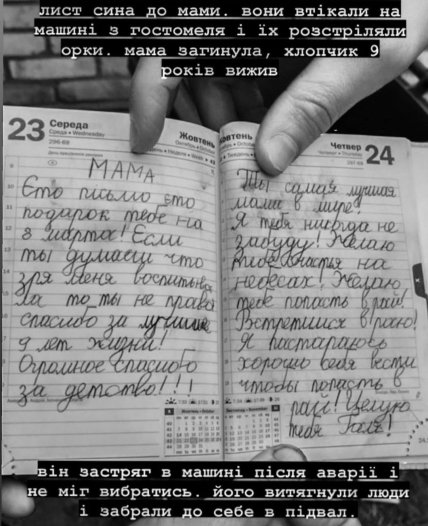 лист сина до мами. вони втікали на
машині з гостомеля і їх розстріляли
орки. мама загинула, хлопчик 9
років вижив
23 Середа
Середа • Wednesday
296-69
Жовтень
МАМА
Ето письмо ето
подарок тебе на
8 марта! Если
ты думаеш что
зря меня воспитыва
ла то ты не права
спасибо за лучшие
9 лет жизни!
Огромное спасибо
за детство!!!
Жовтень
Четвер 24
297-68
Ты самая лучшая
мама в мире!
Я тебя никогда не
забуду! Желаю
тибе счастья на
небесах! Желаю,
тебе попасть в рай!
Встретимся в раю!
Я пастараюсь
хорошо себя вести
чтобы попасть в
рай! Целую
тебя
він застряг в машині після аварії і
не міг вибратись. його витягнули люди
і забрали до себе в підвал.